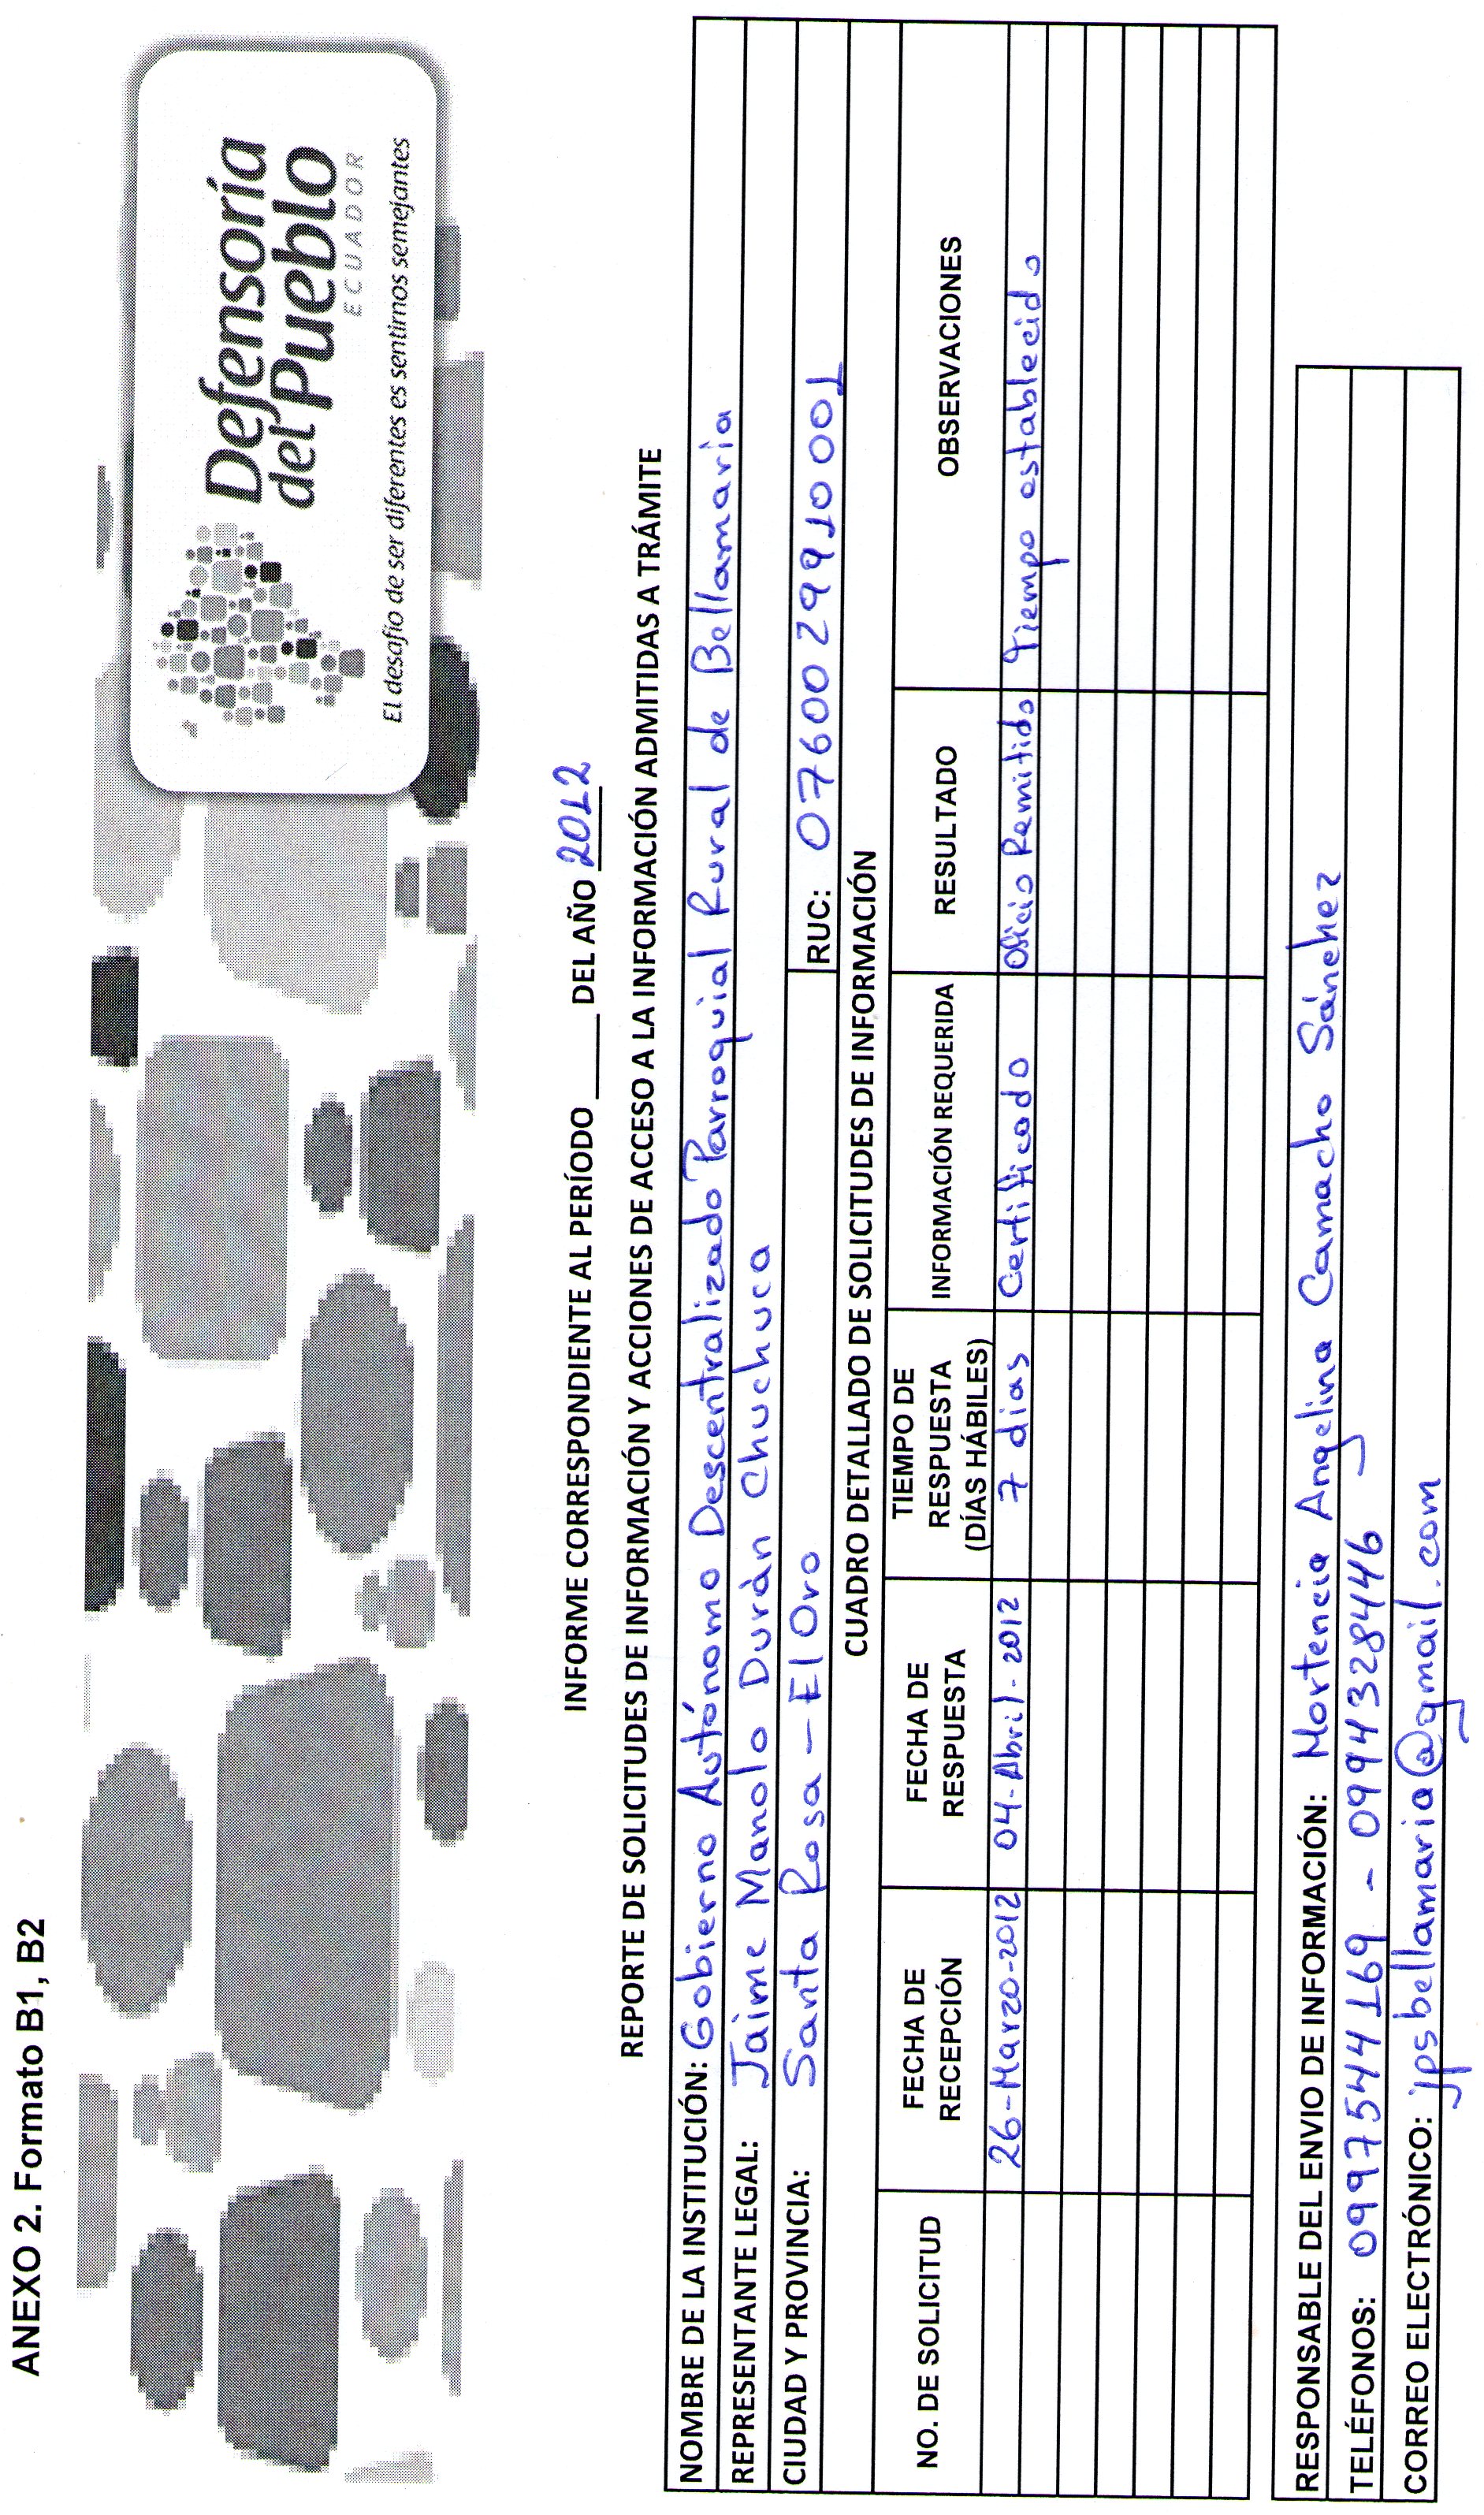 ANEXO 2. Formato B1, B2
Defensoría
del Pueblo
ECUADOR
El desafío de ser diferentes es sentirnos semejantes
INFORME CORRESPONDIENTE AL PERÍODO _____ DEL AÑO 2012
REPORTE DE SOLICITUDES DE INFORMACIÓN Y ACCIONES DE ACCESO A LA INFORMACIÓN ADMITIDAS A TRÁMITE
NOMBRE DE LA INSTITUCIÓN: Gobierno Autónomo Descentralizado Parroquial Rural de Bellamaria
REPRESENTANTE LEGAL: Jaime Manolo Durán Chuchuca
CIUDAD Y PROVINCIA: Santa Rosa - El Oro RUC: 0760029910001
CUADRO DETALLADO DE SOLICITUDES DE INFORMACIÓN
NO. DE SOLICITUD FECHA DE RECEPCIÓN FECHA DE RESPUESTA TIEMPO DE RESPUESTA (DÍAS HÁBILES) INFORMACIÓN REQUERIDA RESULTADO OBSERVACIONES
26-Marzo-2012 04-Abril-2012 7 dias Certificado Oficio Remitido Tiempo establecido
RESPONSABLE DEL ENVIO DE INFORMACIÓN: Mortencia Angelina Camacho Sánchez
TELÉFONOS: 0997544169 - 0994328446
CORREO ELECTRÓNICO: jpsbellamaria@gmail.com